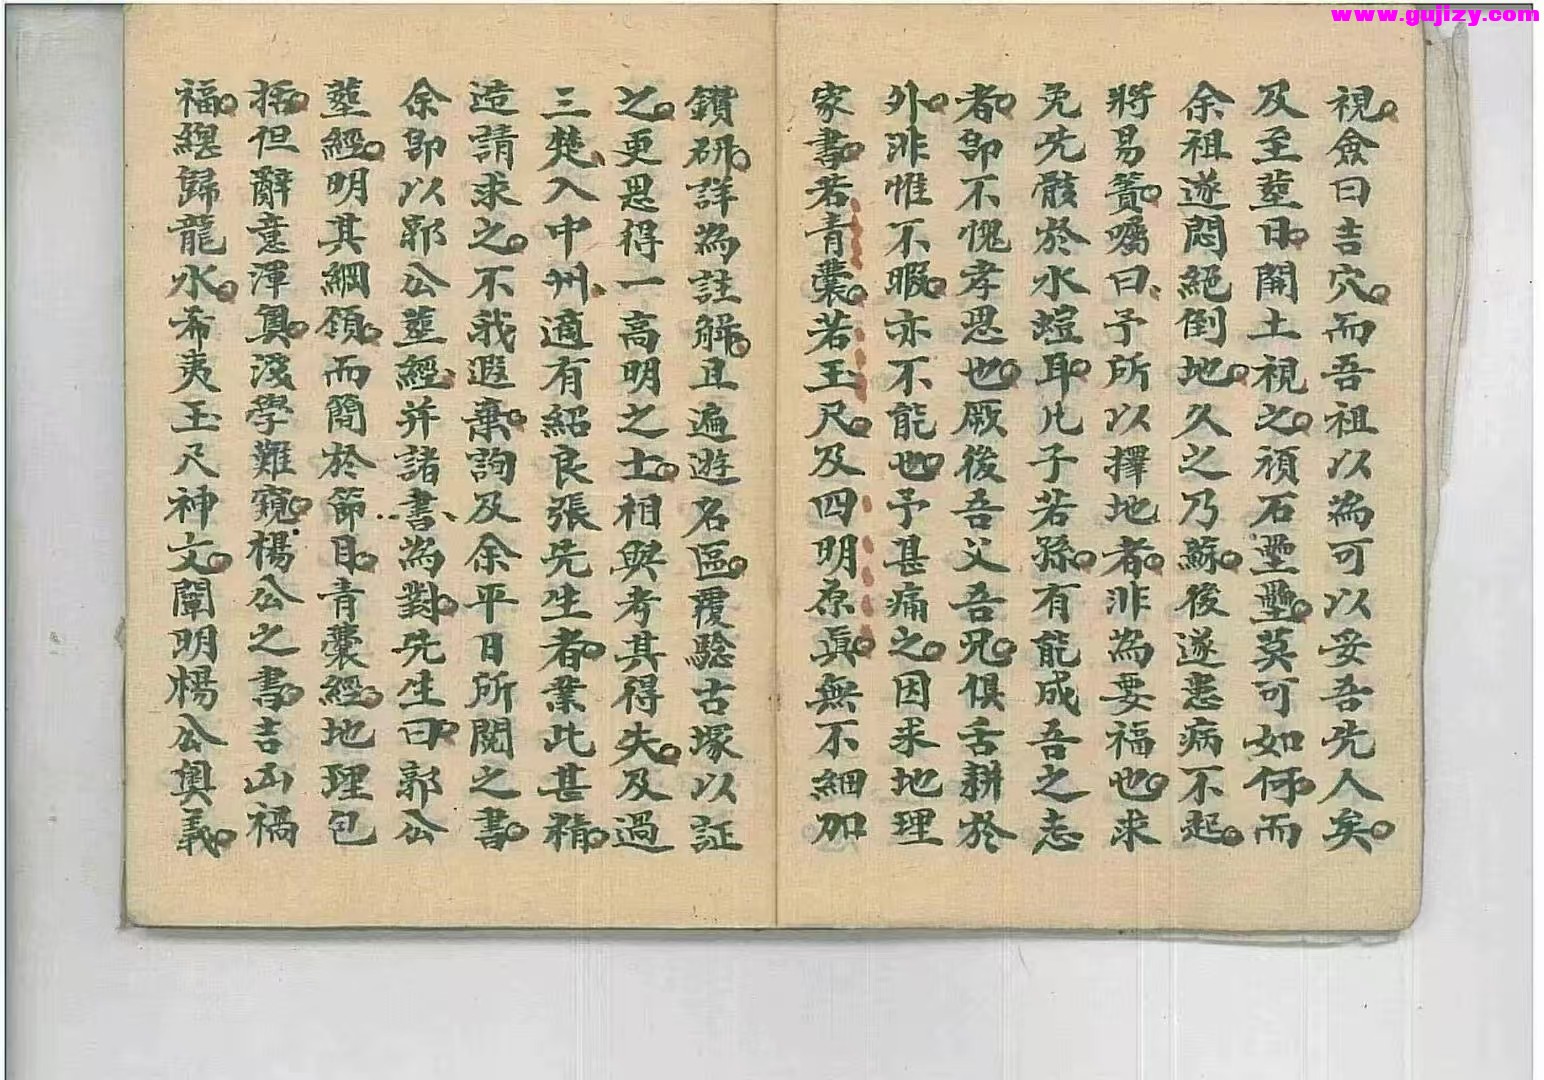 www.gujizy.com
視僉曰吉穴而吾祖以為可以妥吾先人矣
及至塟日開土視之頑石壘壘莫可如何而
余祖遂悶絕倒地久之乃蘇後遂患病不起
將易簀囑曰予所以擇地者非為要福也求
免先骸於水螘耳凡子若孫有能成吾之志
者即不愧孝思也厥後吾父吾兄俱舌耕於
外非惟不暇亦不能也予甚痛之因求地理
家書若青囊若玉尺及四明原真無不細加
鑽研詳為註解且遍遊名區覆驗古塚以証
之更思得一高明之士相與考其得失及過
三楚入中州適有紹良張先生者業此甚精
造請求之不我遐棄詢及余平日所閱之書
余即以郭公塟經并諸書為對先生曰郭公
塟經明其綱領而簡於節目青囊經地理包
括但辭意渾奧淺學難窺楊公之書吉凶禍
福緫歸龍水希夷玉尺神文闡明楊公奧義